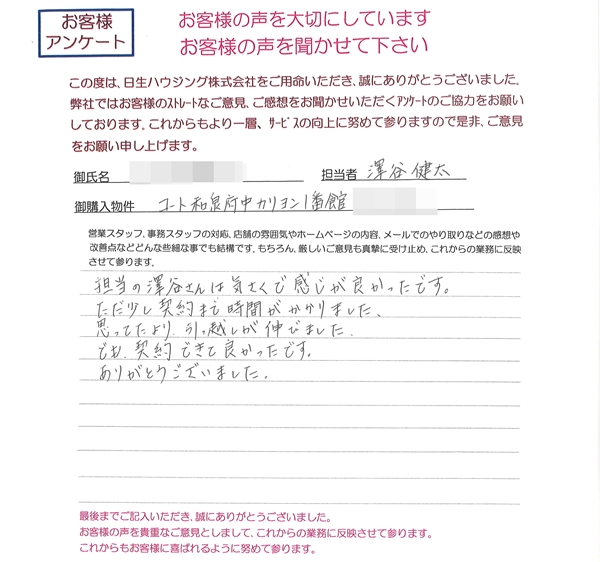 お客様
アンケート
お客様の声を大切にしています
お客様の声を聞かせて下さい
この度は、日生ハウジング株式会社をご用命いただき、誠にありがとうございました。
弊社ではお客様のストレートなご意見、ご感想をお聞かせいただくアンケートのご協力をお願い
しております。これからもより一層、サービスの向上に努めて参りますので是非、ご意見
をお願い申し上げます。
御氏名 担当者 澤谷健太
御購入物件 コート和泉府中カリヨン1番館
営業スタッフ、事務スタッフの対応、店舗の雰囲気やホームページの内容、メールでのやり取りなどの感想や
改善点などどんな些細な事でも結構です。もちろん、厳しいご意見も真摯に受け止め、これからの業務に反映
させて参ります。
担当の澤谷さんは気さくで感じが良かったです。
ただ少し契約まで時間がかかりました、
思ってたより引っ越しが伸びました、
でも、契約できて良かったです。
ありがとうございました。
最後までご記入いただき、誠にありがとうございました。
お客様の声を貴重なご意見としまして、これからの業務に反映させて参ります。
これからもお客様に喜ばれるように努めて参ります。